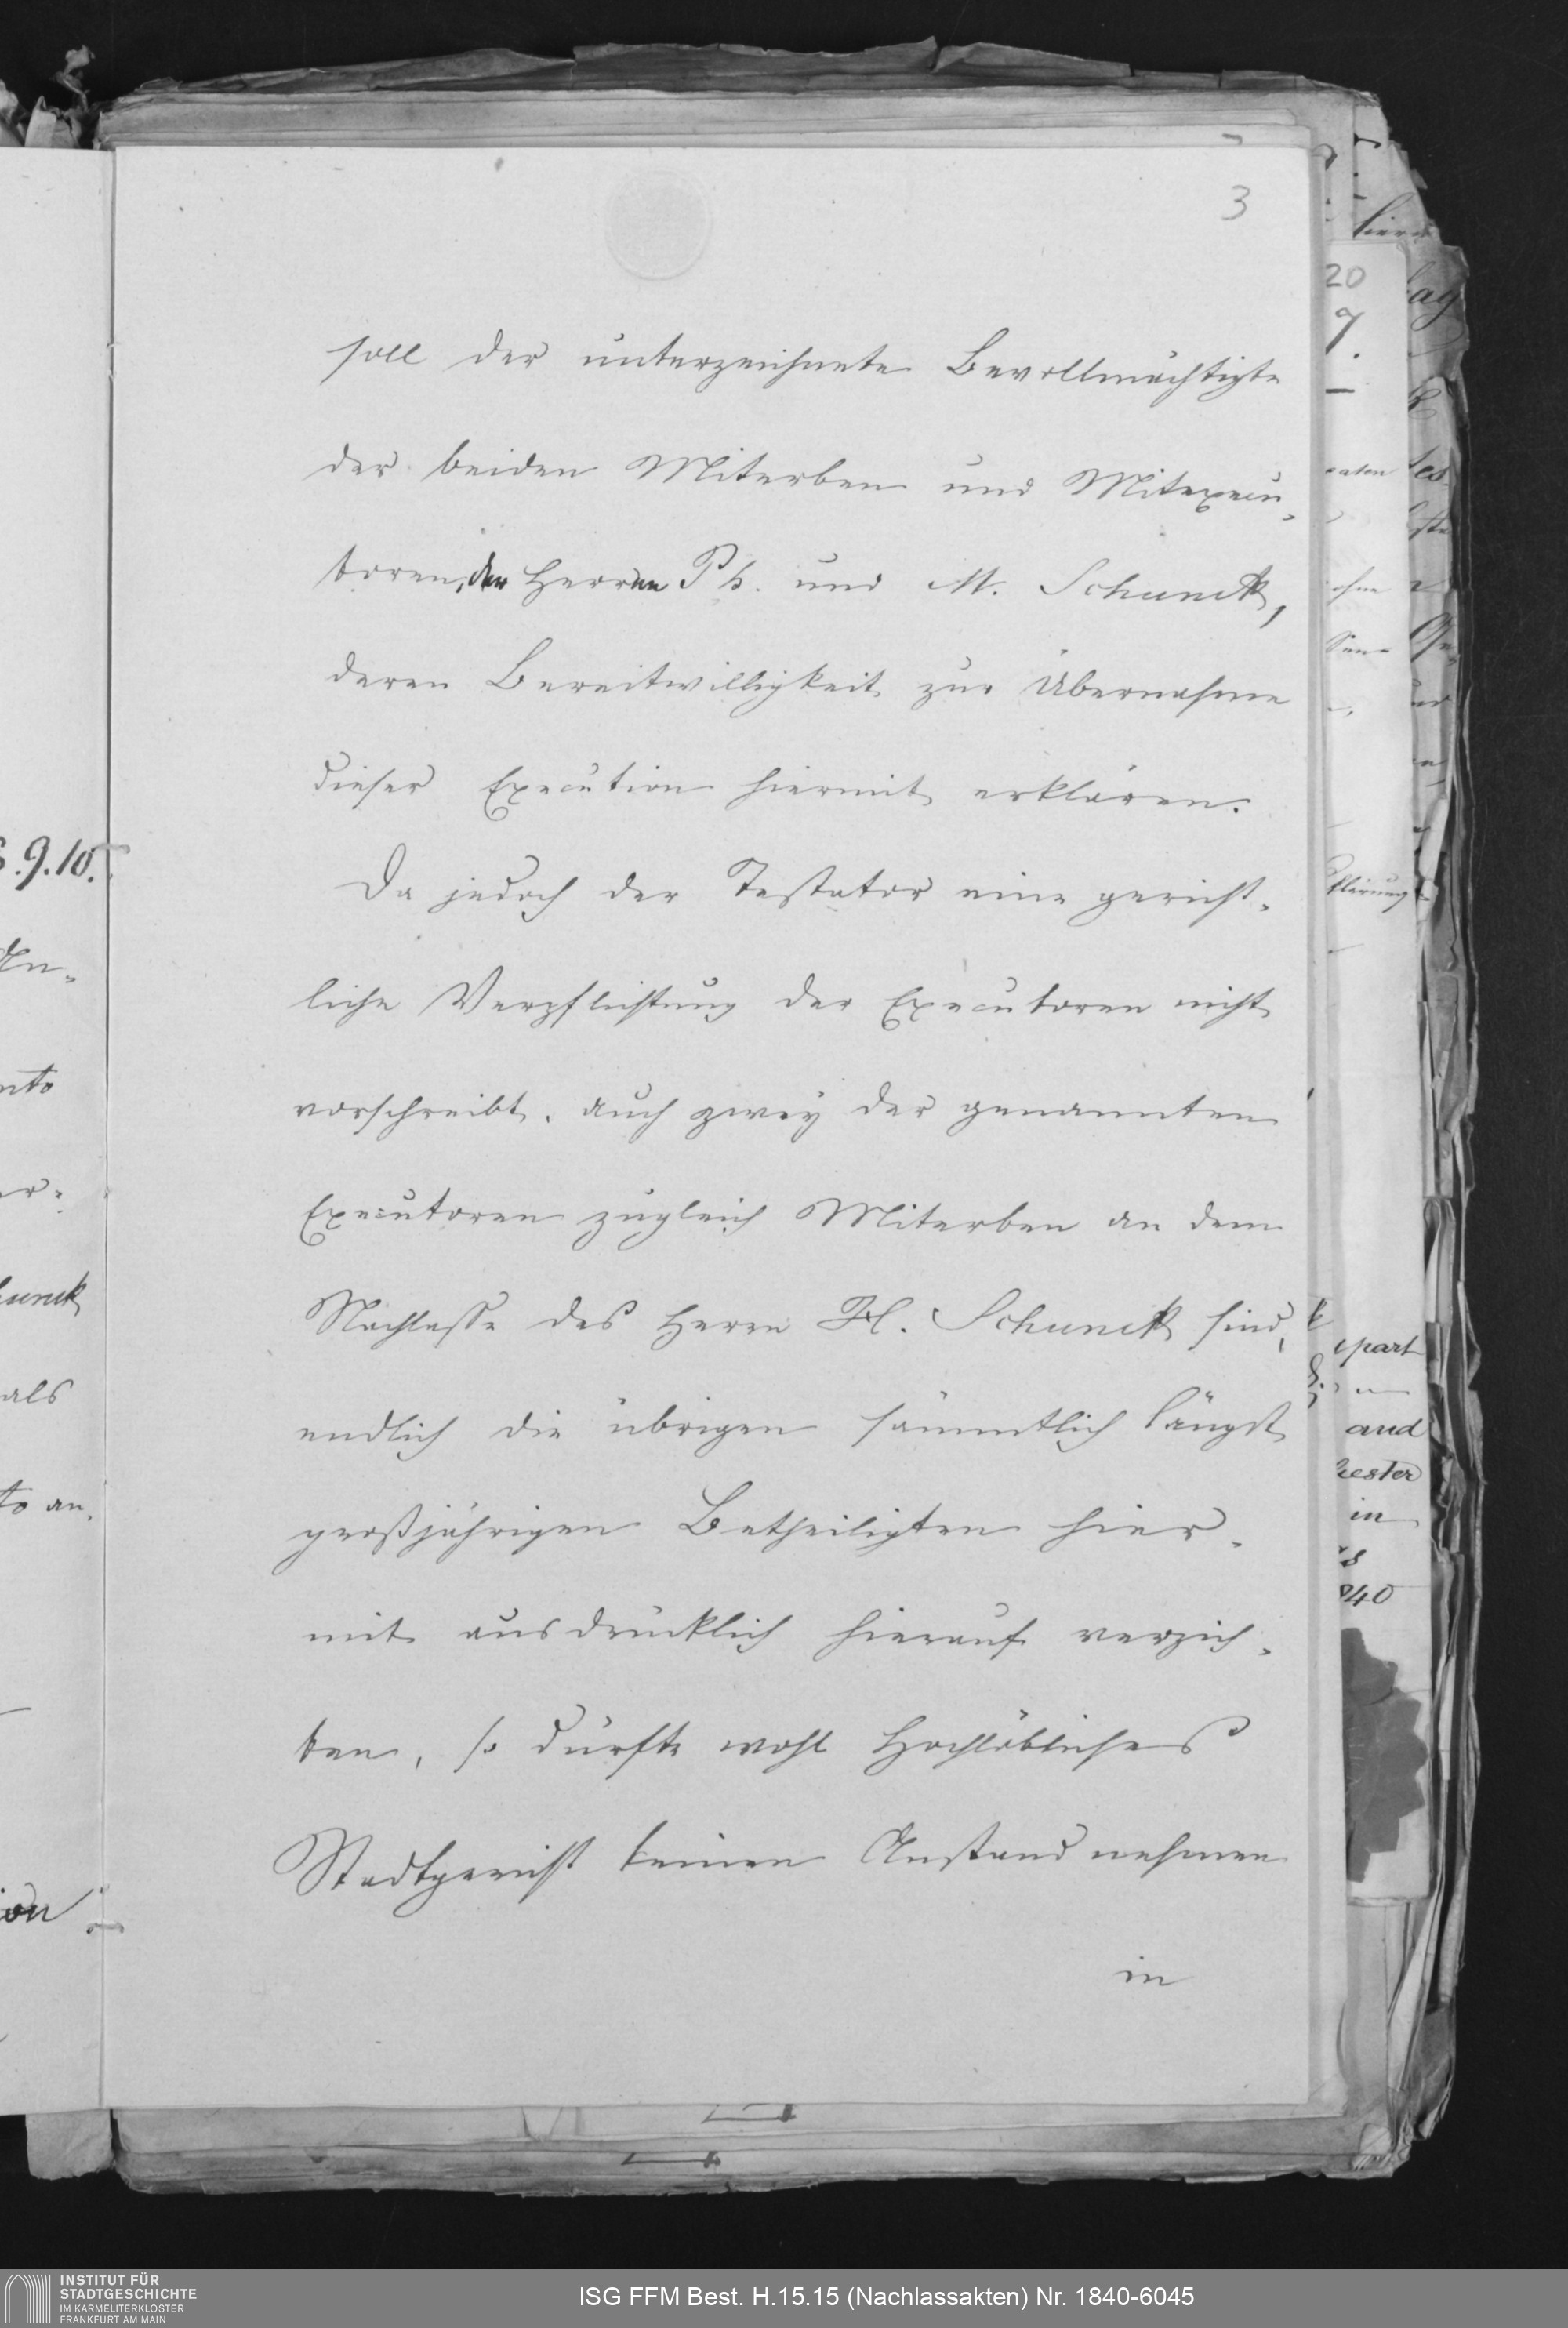 3
soll der unterzeichnete Bevollmächtigte
der beiden Miterben und Mitexecu-
toren, der Herren Ph. und M. Schunck,
deren Bereitwilligkeit zur Übernahme
dieser Execution hiermit erklären.
Da jedoch der Testator eine gericht-
liche Verpflichtung der Executoren nicht
vorschreibt, auch zwey der genannten
Executoren zugleich Miterben an dem
Nachlasse des Herrn H. Schunck sind,
endlich die übrigen sämmtlich längst
großjährigen Betheiligten hier-
mit ausdrücklich hierauf verzich-
ten, so dürfte wohl Hochlöbliches
Stadtgericht keinen Anstand nehmen
in
9.10.
als
to an
20
9.
ohne
part
and
in
40
INSTITUT FÜR
STADTGESCHICHTE
IM KARMELITERKLOSTER
FRANKFURT AM MAIN
ISG FFM Best. H.15.15 (Nachlassakten) Nr. 1840-6045